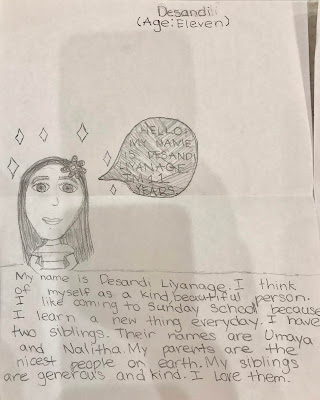 Desandi
(Age:Eleven)
HELLO!
MY NAME
IS DESANDI
LIYANAGE
I'M 11
YEARS
My name is Desandi Liyanage. I think
of myself as a kind, beautiful person.
I like coming to Sunday school because
I learn a new thing everyday. I have
two siblings. Their names are Umaya
and Nalitha. My parents are the
nicest people on earth. My siblings
are generous and kind. I love them.